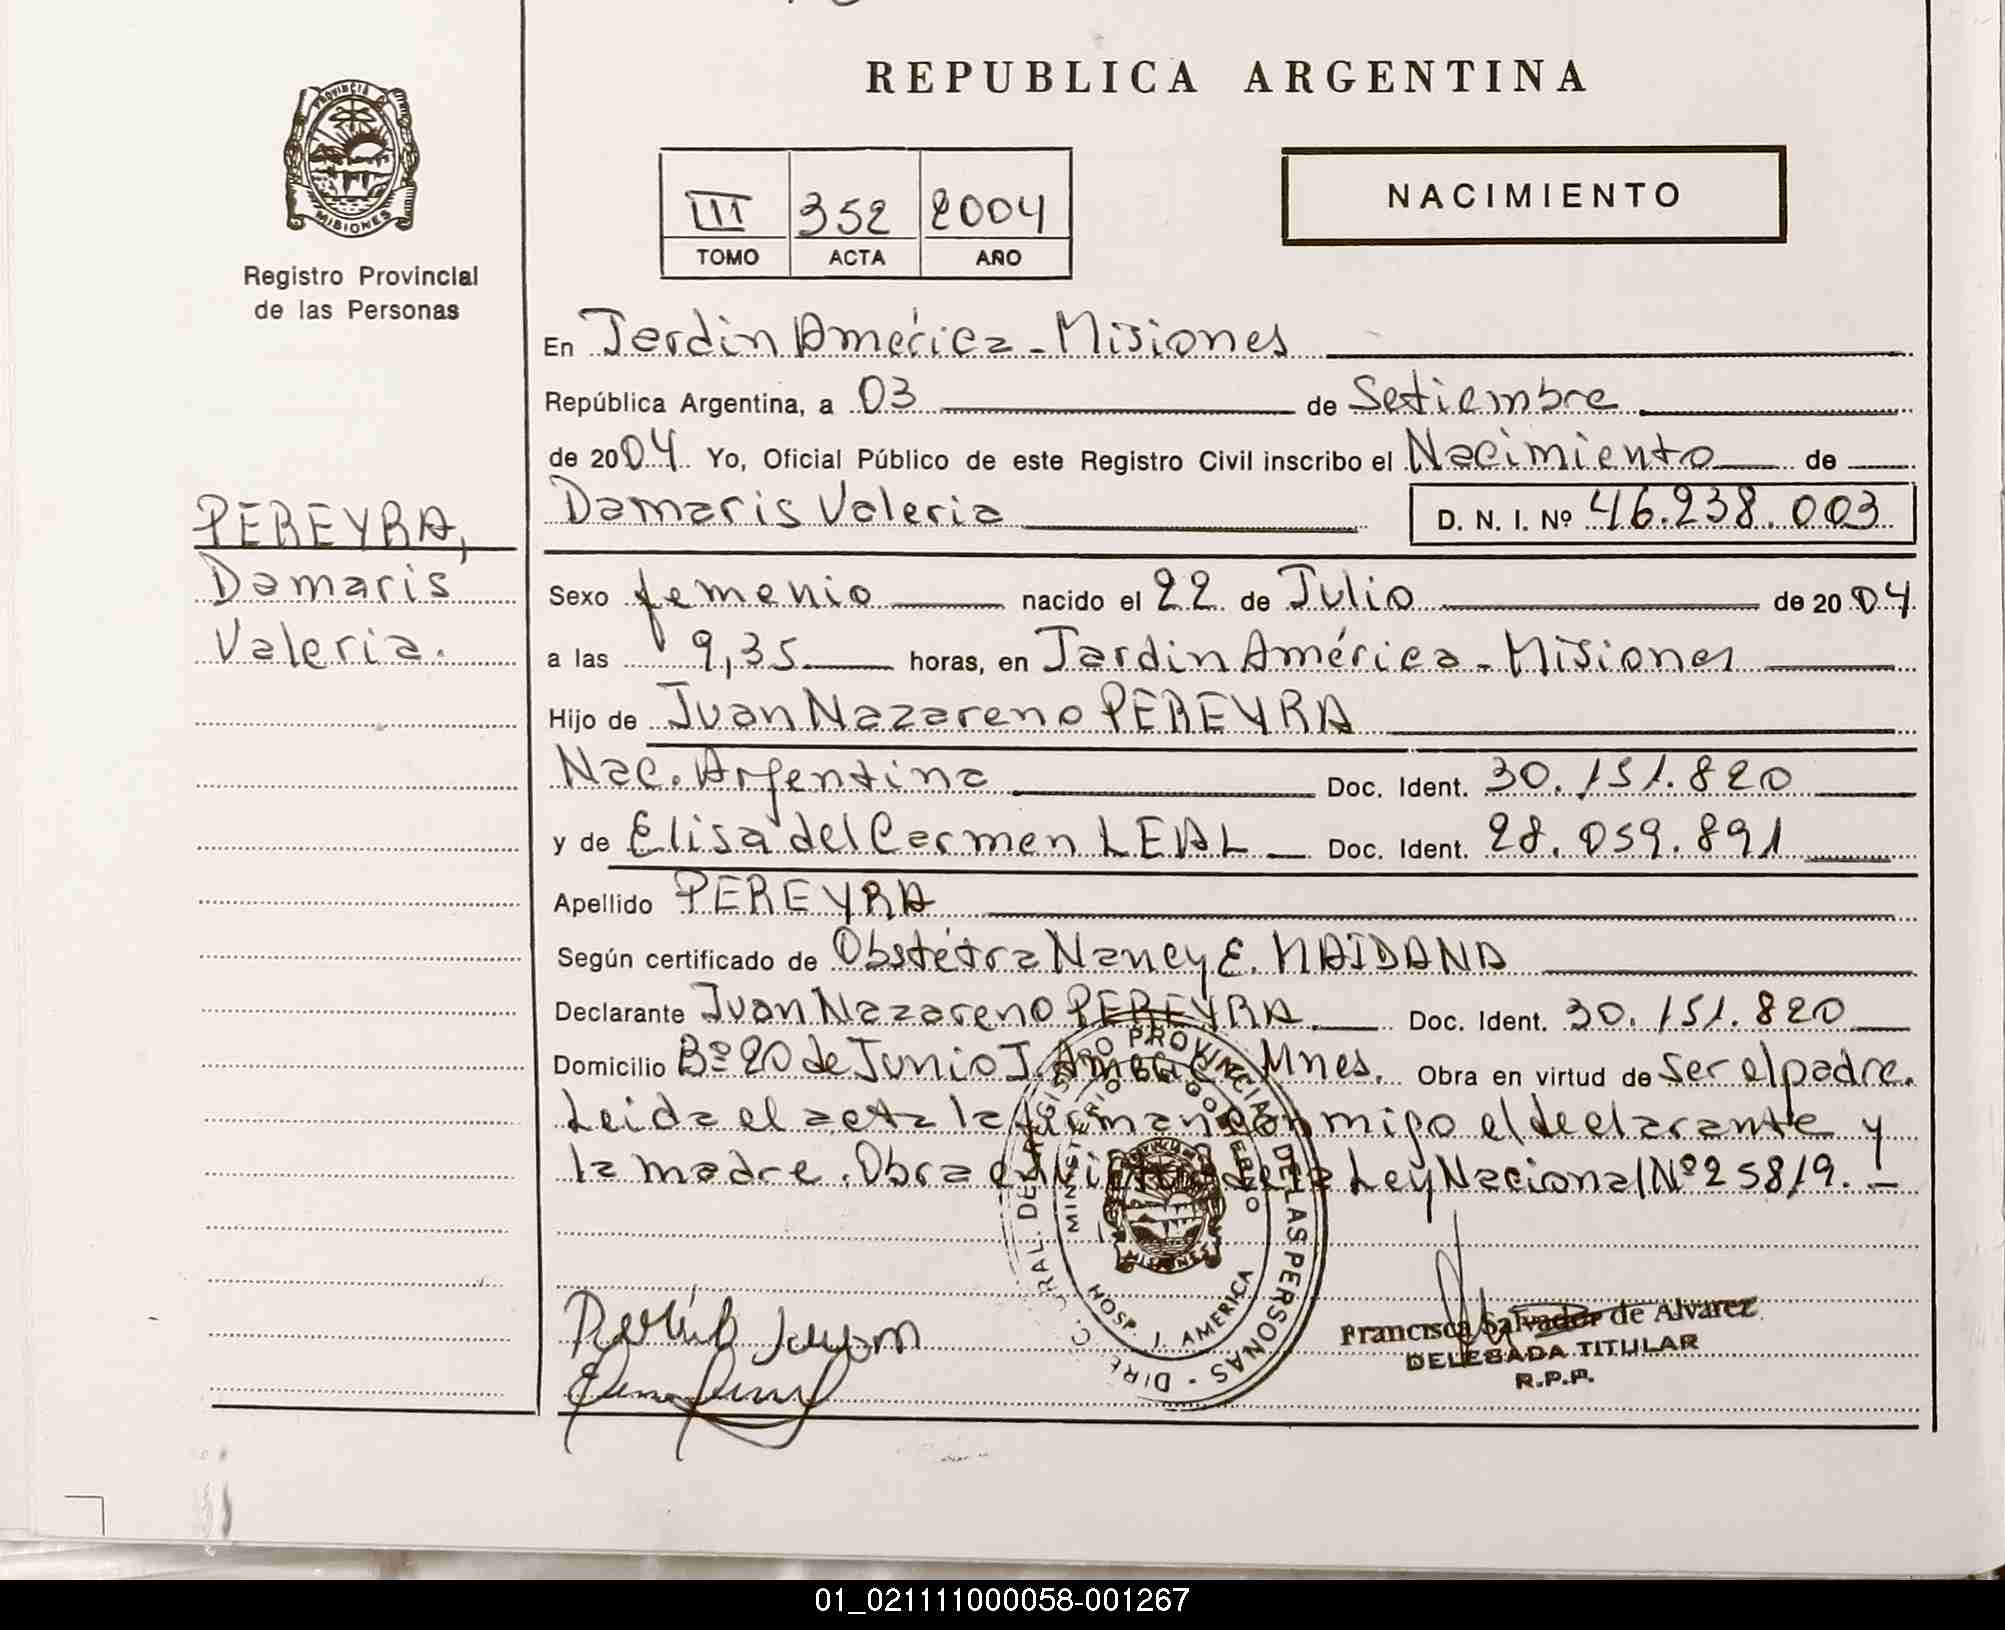 REPUBLICA ARGENTINA
PROVINCIA D
MISIONES
Registro Provincial
de las Personas
III 352 2004
TOMO ACTA AÑO
NACIMIENTO
En Jardin América - Misiones
República Argentina, a 03 de Setiembre
de 2004. Yo, Oficial Público de este Registro Civil inscribo el Nacimiento de
Damaris Valeria D. N. I. Nº 46.238.003
PEREYRA,
Damaris
Valeria.
Sexo femenio nacido el 22 de Julio de 2004
a las 9,35 horas, en Jardin América - Misiones
Hijo de Juan Nazareno PEREYRA
Nac. Argentina Doc. Ident. 30.151.820
y de Elisa del Carmen LEAL Doc. Ident. 28.059.891
Apellido PEREYRA
Según certificado de Obstétra Nancy E. MAIDANA
Declarante Juan Nazareno PEREYRA. Doc. Ident. 30.151.820
Domicilio Bº 20 de Junio J. América Mnes. Obra en virtud de Ser el padre.
Leida el acta la firman conmigo el declarante y
la madre. Obra en virtud de la Ley Nacional Nº 25819. -
DIRE C. GRAL. DE REGISTRO PROVINCIAL DE LAS PERSONAS -
MINISTERIO DE GOBIERNO
MISIONES
HOSP. J. AMERICA
Francisca Salvador de Alvarez
DELEGADA TITULAR
R.P.P.
01_021111000058-001267